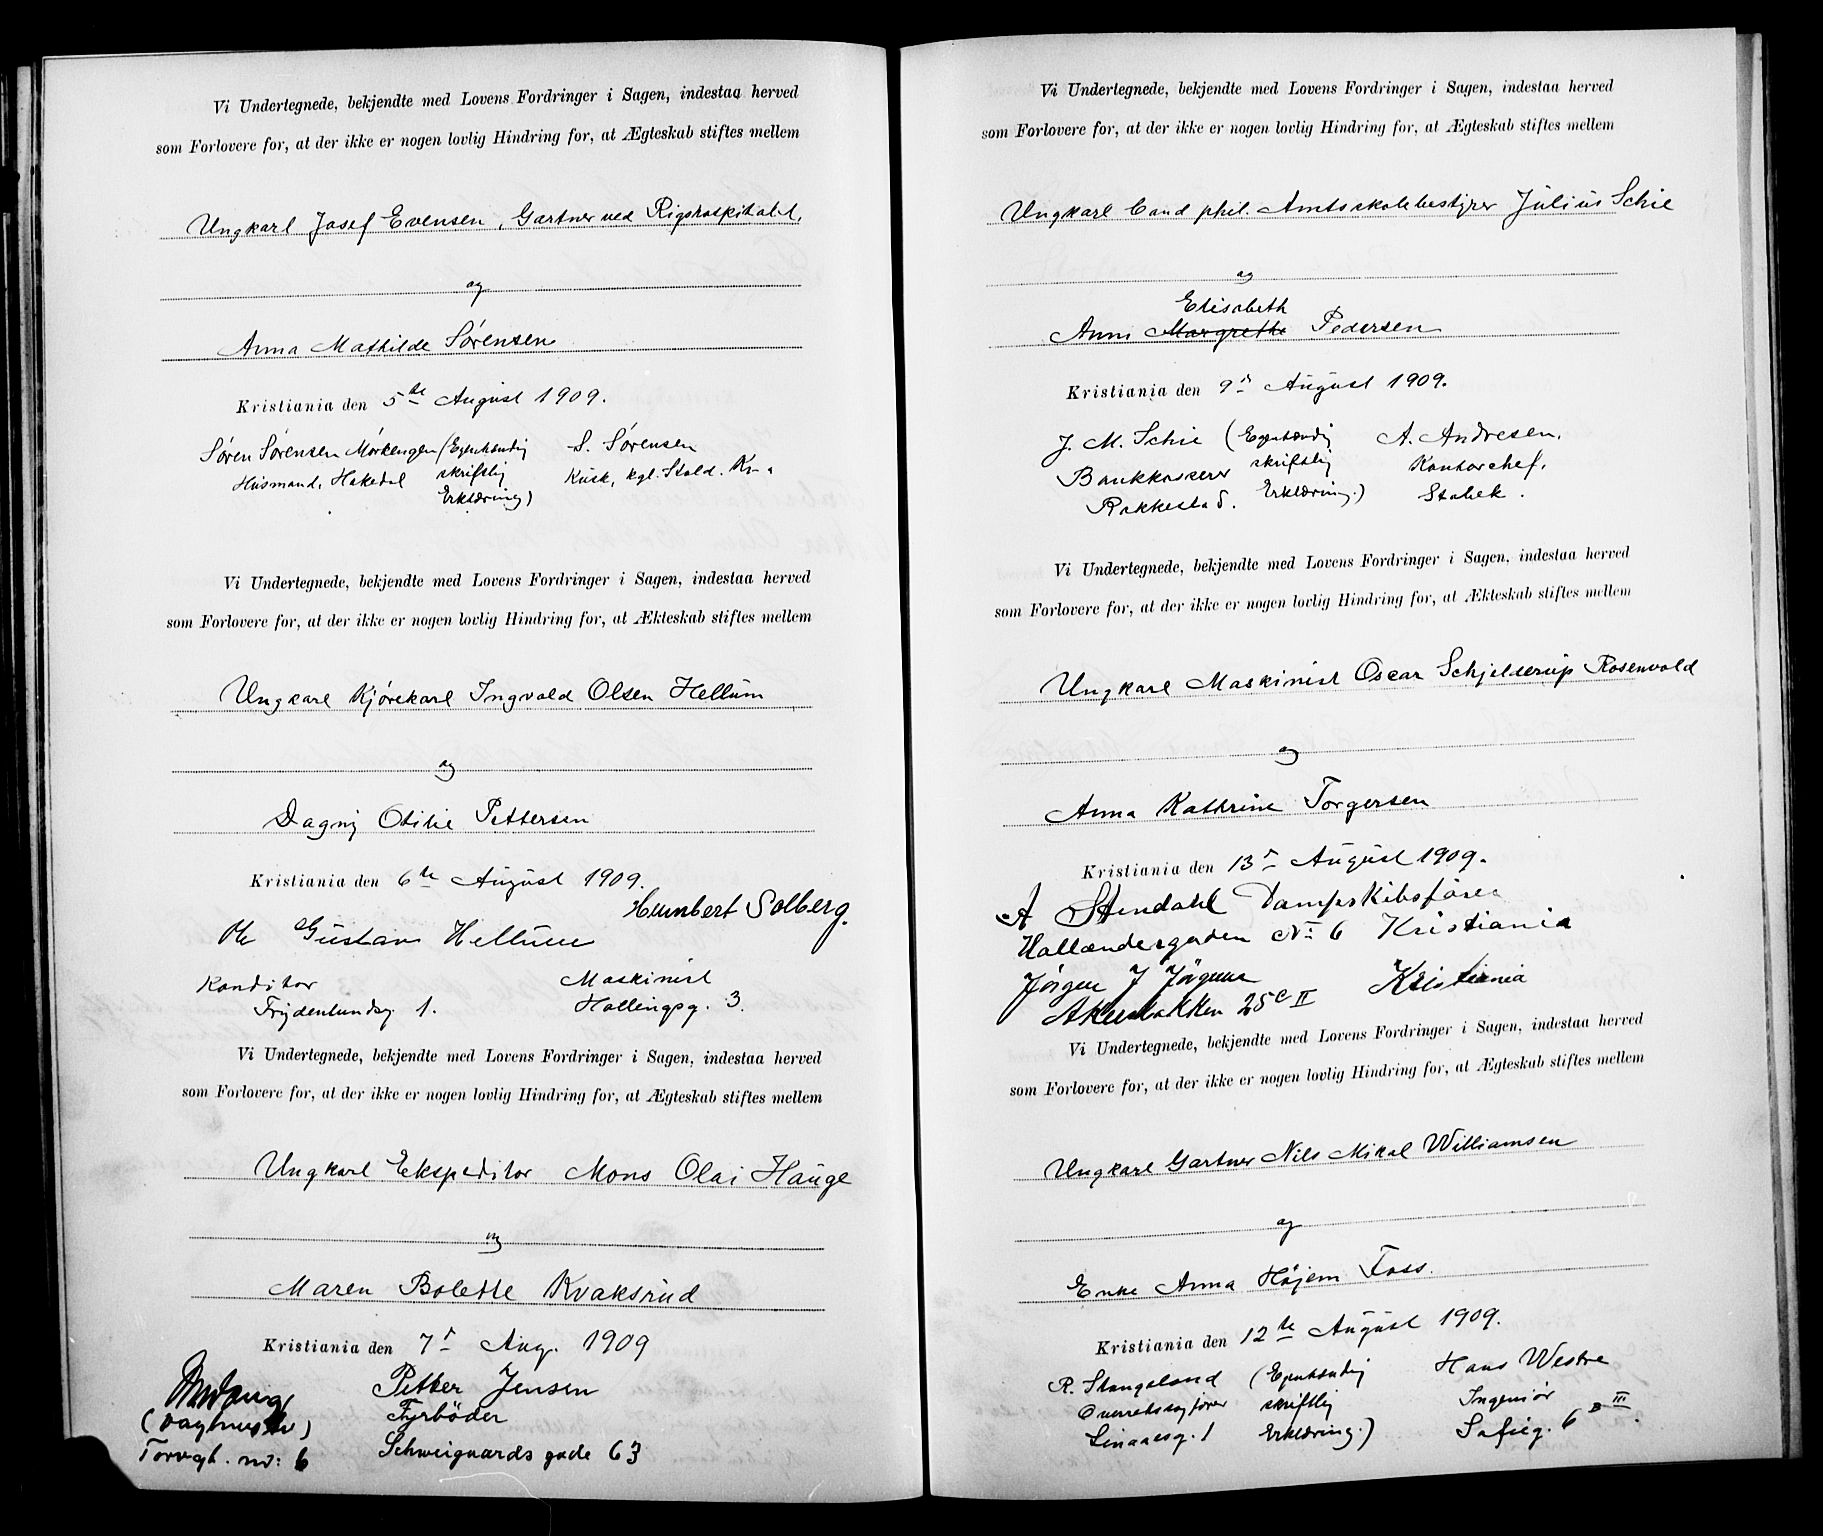 Vi Undertegnede, bekjendte med Lovens Fordringer i Sagen, indestaa herved
som Forlovere for, at der ikke er nogen lovlig Hindring for, at Ægteskab stiftes mellem
Ungkarl Josef Evensen, Gartner ved Rigshospitalet,
og
Anna Mathilde Sørensen
Kristiania den 5te August 1909.
Søren Sørensen Mørkengen (Egenhændig S. Sørensen
Husmand, Hakedal skriftlig Kusk, kgl. Stald. Kr.a
Erklæring)
Vi Undertegnede, bekjendte med Lovens Fordringer i Sagen, indestaa herved
som Forlovere for, at der ikke er nogen lovlig Hindring for, at Ækteskab stiftes mellem
Ungkarl Kjørekarl Ingvald Olsen Hellum
og
Dagny Otilie Pettersen
Kristiania den 6te August 1909.
Humbert Solberg.
Gustav Hellum
Konditor Maskinist
Frydenlundsg. 1. Hollingsg. 3.
Vi Undertegnede, bekjendte med Lovens Fordringer i Sagen, indestaa herved
som Forlovere for, at der ikke er nogen lovlig Hindring for, at Ægteskab stiftes mellem
Ungkarl Ekspeditor Mons Olai Hauge
og
Maren Bolette Kvaksrud
Kristiania den 7d Aug. 1909
Petter Jensen
Fyrbøder
Torvgt. nr: 6 Schweigaards gade 63
Vi Undertegnede, bekjendte med Lovens Fordringer i Sagen, indestaa herved
som Forlovere for, at der ikke er nogen lovlig Hindring for, at Ægteskab stiftes mellem
Ungkarl Cand phil. Amtsskolebestyrer Julius Schie
og
Elisabeth
Anna Margrethe Pedersen
Kristiania den 9d August 1909.
J. M. Schie (Egenhændig A. Andresen,
Bankkasserer skriftlig Kontorchef,
Rakkestad. Erklæring.) Stabek.
Vi Undertegnede, bekjendte med Lovens Fordringer i Sagen, indestaa herved
som Forlovere for, at der ikke er nogen lovlig Hindring for, at Ækteskab stiftes mellem
Ungkarl Maskinist Oscar Schjelderup Rosenvold
og
Anna Kathrine Torgersen
Kristiania den 13d August 1909.
A Stendahl Dampskibsfører
Hollændergaden No 6 Kristiania
Jørgen J Kristiania
Akersbakken 25c II
Vi Undertegnede, bekjendte med Lovens Fordringer i Sagen, indestaa herved
som Forlovere for, at der ikke er nogen lovlig Hindring for, at Ægteskab stiftes mellem
Ungkarl Gartner Nils Mikal Williamsen
og
Enke Anna Højem Foss.
Kristiania den 12te August 1909.
R. Stangeland (Egenhændig Hans Westre
Overretssagfører skriftlig Ingeniør
Erklæring.) Sofieg. 6 B III.